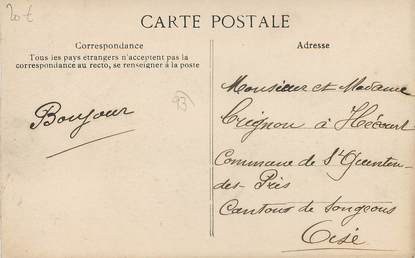 20 t
CARTE POSTALE
Correspondance
Tous les pays étrangers n'acceptent pas la
correspondance au recto, se renseigner à la poste
Adresse
93
Bonjour
Monsieur et Madame
Crignon à Hécourt
Commune de St Quentin
des-Prés
Cantons de Songeons
Oise